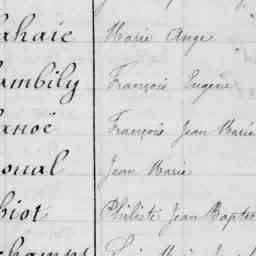 ahaie Marie Ange
ambily François Eugène
anoë François Jean Marie
oual Jean Marie
biot Philiste Jean Baptis
champs